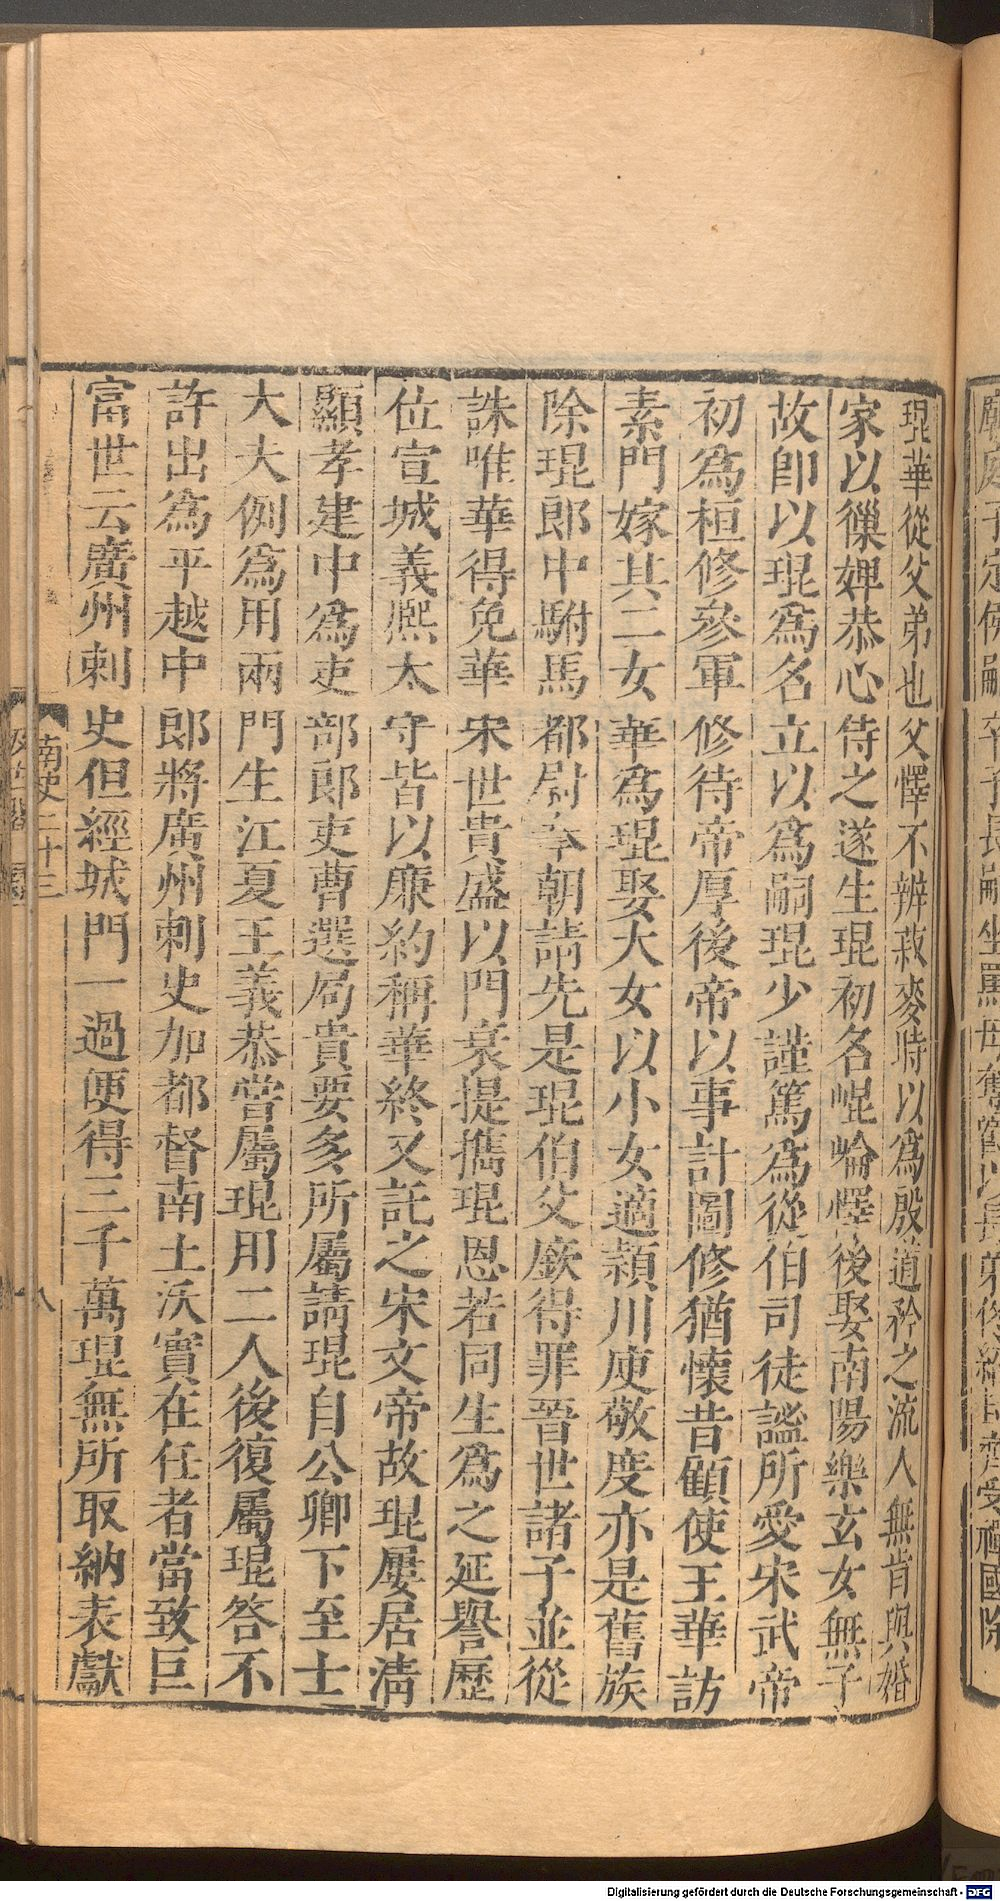 琨華從父弟也父懌不辨菽麥時以爲殷道矜之流人無肯與婚
家以獠婢恭心侍之遂生琨初名崐崘懌後娶南陽樂玄女無子
故卽以琨爲名立以爲嗣琨少謹篤爲從伯司徒謐所愛宋武帝
初爲桓修參軍修待帝厚後帝以事計圖修猶懷昔顧使王華訪
素門嫁其二女華爲琨娶大女以小女適潁川庾敬度亦是舊族
除琨郎中駙馬都尉奉朝請先是琨伯父廞得罪晉世諸子並從
誅唯華得免華宋世貴盛以門衰提攜琨恩若同生爲之延譽歷
位宣城義熙太守皆以廉約稱華終又託之宋文帝故琨屢居淸
顯孝建中爲吏部郎吏曹選局貴要多所屬請琨自公卿下至士
大夫例爲用兩門生江夏王義恭嘗屬琨用二人後復屬琨答不
許出爲平越中郎將廣州刺史加都督南土沃實在任者當致巨
富世云廣州刺史但經城門一過便得三千萬琨無所取納表獻
南史二十三
八
Digitalisierung gefördert durch die Deutsche Forschungsgemeinschaft - DFG